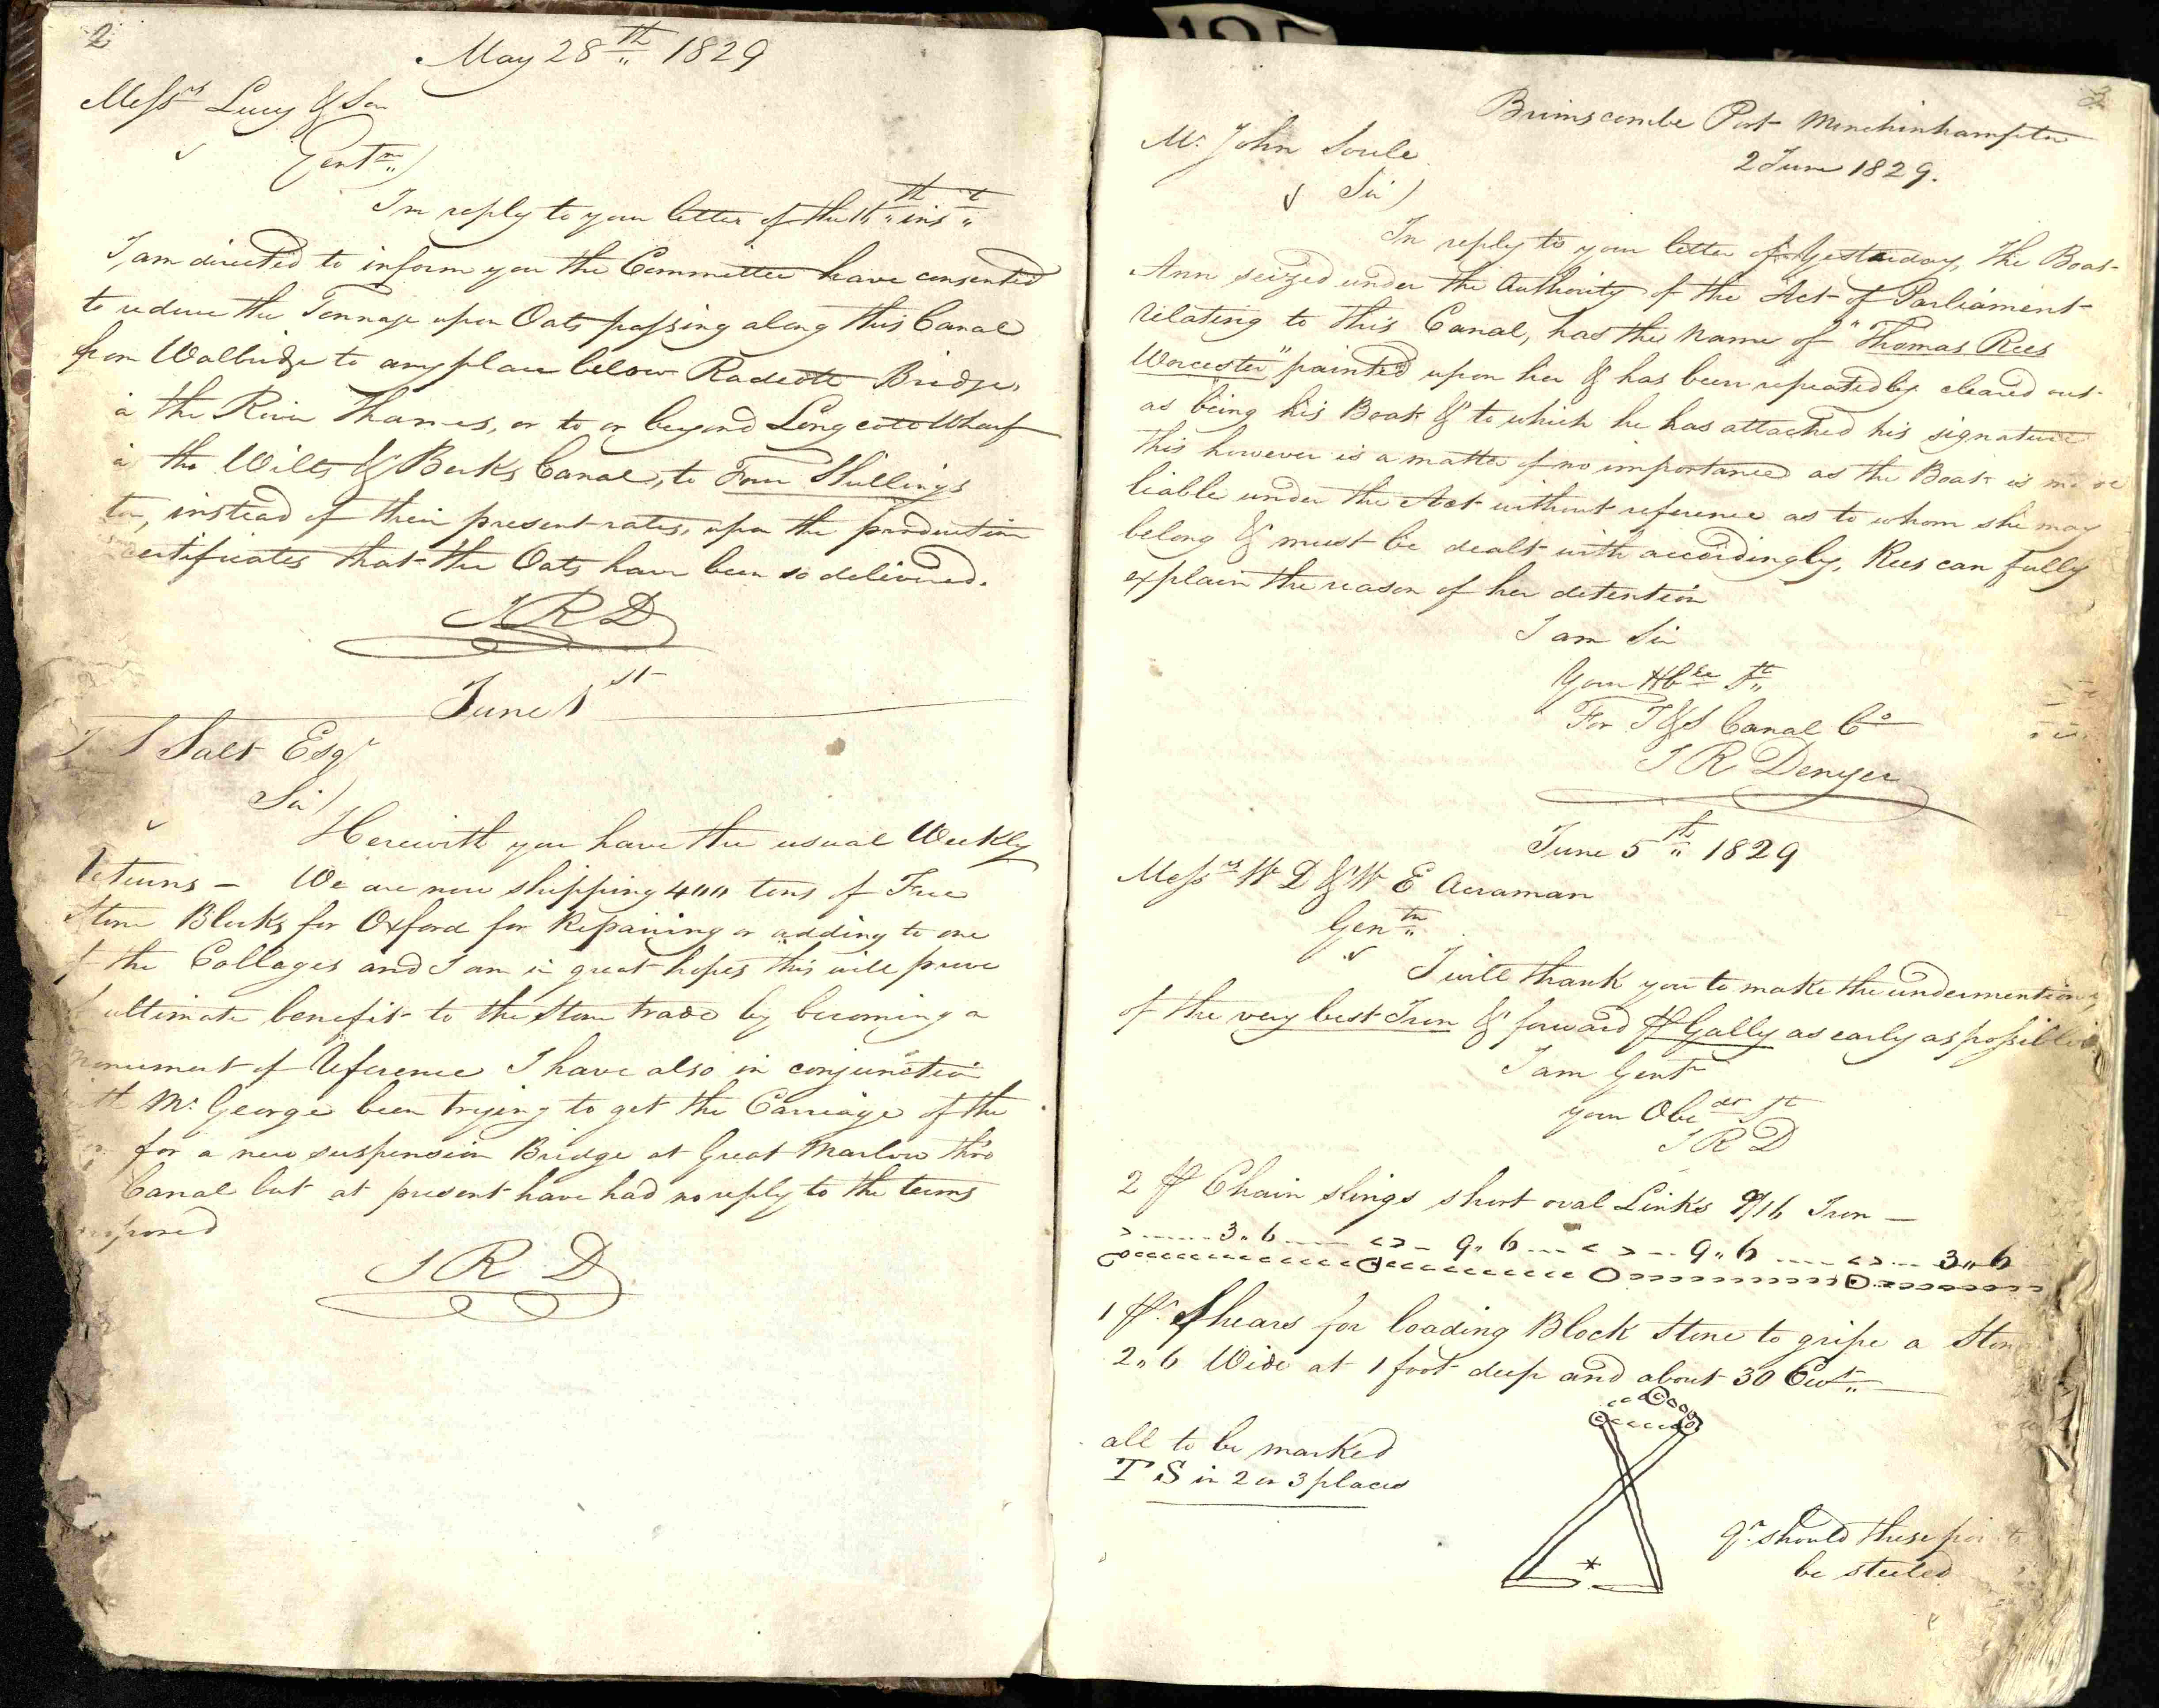 2
May 28th 1829
Messrs Lucy & Son
Gentn)
In reply to your letter of the 16th inst
I am directed to inform you the Committee have consented
to reduce the Tonnage upon Oats passing along this Canal
from Wallbridge to any place below Radcote Bridge,
in the River Thames, or to or beyond Longcott Wharf
in the Wilts & Berks Canal, to Four Shillings
ton, instead of their present rates, upon the production
certificates that the Oats have been so delivered.
J R D
June 1st
S Salt Esqr
Sir)
Herewith you have the usual Weekly
Returns – We are now shipping 400 tons of Free
Stone Blocks for Oxford for Repairing or adding to one
of the Collages and I am in great hopes this will prove
of ultimate benefit to the Stone trade by becoming a
monument of Reference I have also in conjunction
with Mr George been trying to get the Carriage of the
for a new suspension Bridge at Great Marlow thro
Canal but at present have had no reply to the terms
proposed
J R D
3
Brimscombe Port Minchinhampton
2 June 1829.
Mr John Soule
Sir)
In reply to your letter of Yesterday, The Boat
Ann seized under the Authority of the Act of Parliament
relating to this Canal, has the name of "Thomas Rees
Worcester" painted upon her & has been repeatedly cleared out
as being his Boat & to which he has attached his signature
this however is a matter of no importance as the Boat is made
liable under the Act without reference as to whom she may
belong & must be dealt with accordingly, Rees can fully
explain the reason of her detention
I am Sir
Your Hble St
For T & S Canal Co
J R Denyer
June 5th 1829
Messrs W D & W E Acraman
Gentn
I will thank you to make the undermention'd
of the very best Iron & forward pr Gally as early as possible
I am Gentn
your Obedt St
J R D
2 pr Chain slings short oval Links 9/16 Iron –
3"6 9"6 9"6 3"6
1 pr Shears for loading Block Stone to gripe a Stone
2"6 Wide at 1 foot deep and about 30 Cwt
all to be marked
T S in 2 or 3 places
*
Qr should these points
be steeled